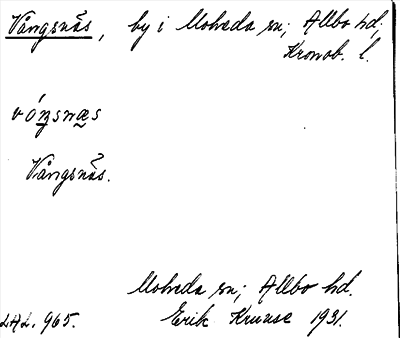 Vångsnäs, by i Moheda sn; Allbo hd;
Kronob. l.
vóŋsnæs
Vångsnäs.
Moheda sn; Allbo hd.
LAL. 965. Erik Kruuse 1931.